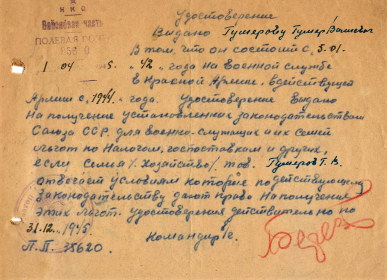 Удостоверение
Районная часть
ПОЛЕВАЯ
Выдано Гумерову Гумер Валиевич
В том, что он состоит с 5.01.
1 04 5. "42" года на военной службе
в Красной Армии, в действущей
Армии с 1941 года. Удостоверение выдано
на получение установленных законодательством
Союза ССР. для военно-служащих и их семей
льгот по налогом, госпоставкам и других,
если семья /хозяйство/ тов. Гумеров Г. В.
отвечает условиям которые по действующему
законодательству дают право на получение
этих льгот. удостоверения действительно по
31.12. 1945.
Командир
П.П. 35620.